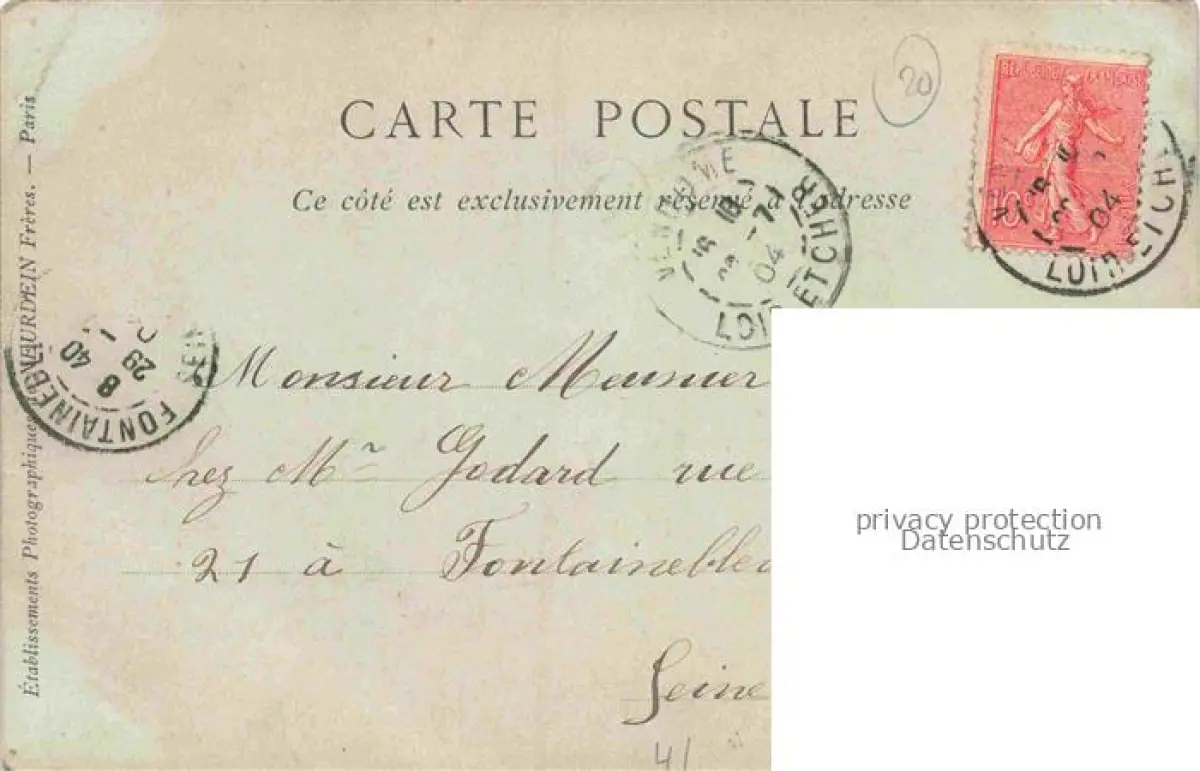 CARTE POSTALE
Ce côté est exclusivement réservé à l'adresse
20
VENDOME
LOIR ETCHER
04
LOIR ETCH
04
10
FONTAINEBLEAU
8 40
29
Établissements Photographiques NEURDEIN Frères. — Paris
Monsieur Meunier
Chez Mr Godard rue
21 à Fontaineblea
Seine
41
privacy protection
Datenschutz